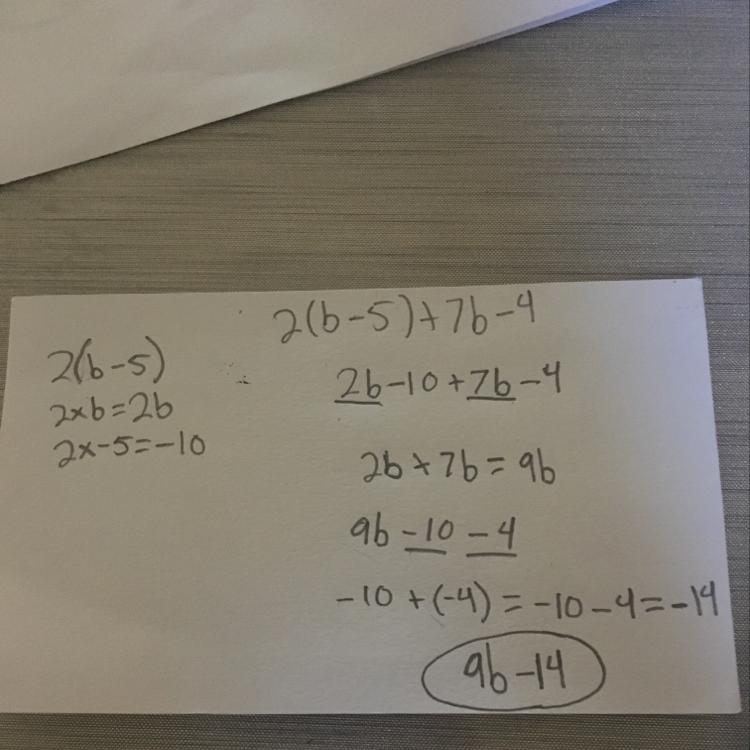 2(b-5)
2xb=2b
2x-5=-10
2(b-5)+7b-4
2b-10+7b-4
2b+7b=9b
9b-10-4
-10+(-4)=-10-4=-14
9b-14